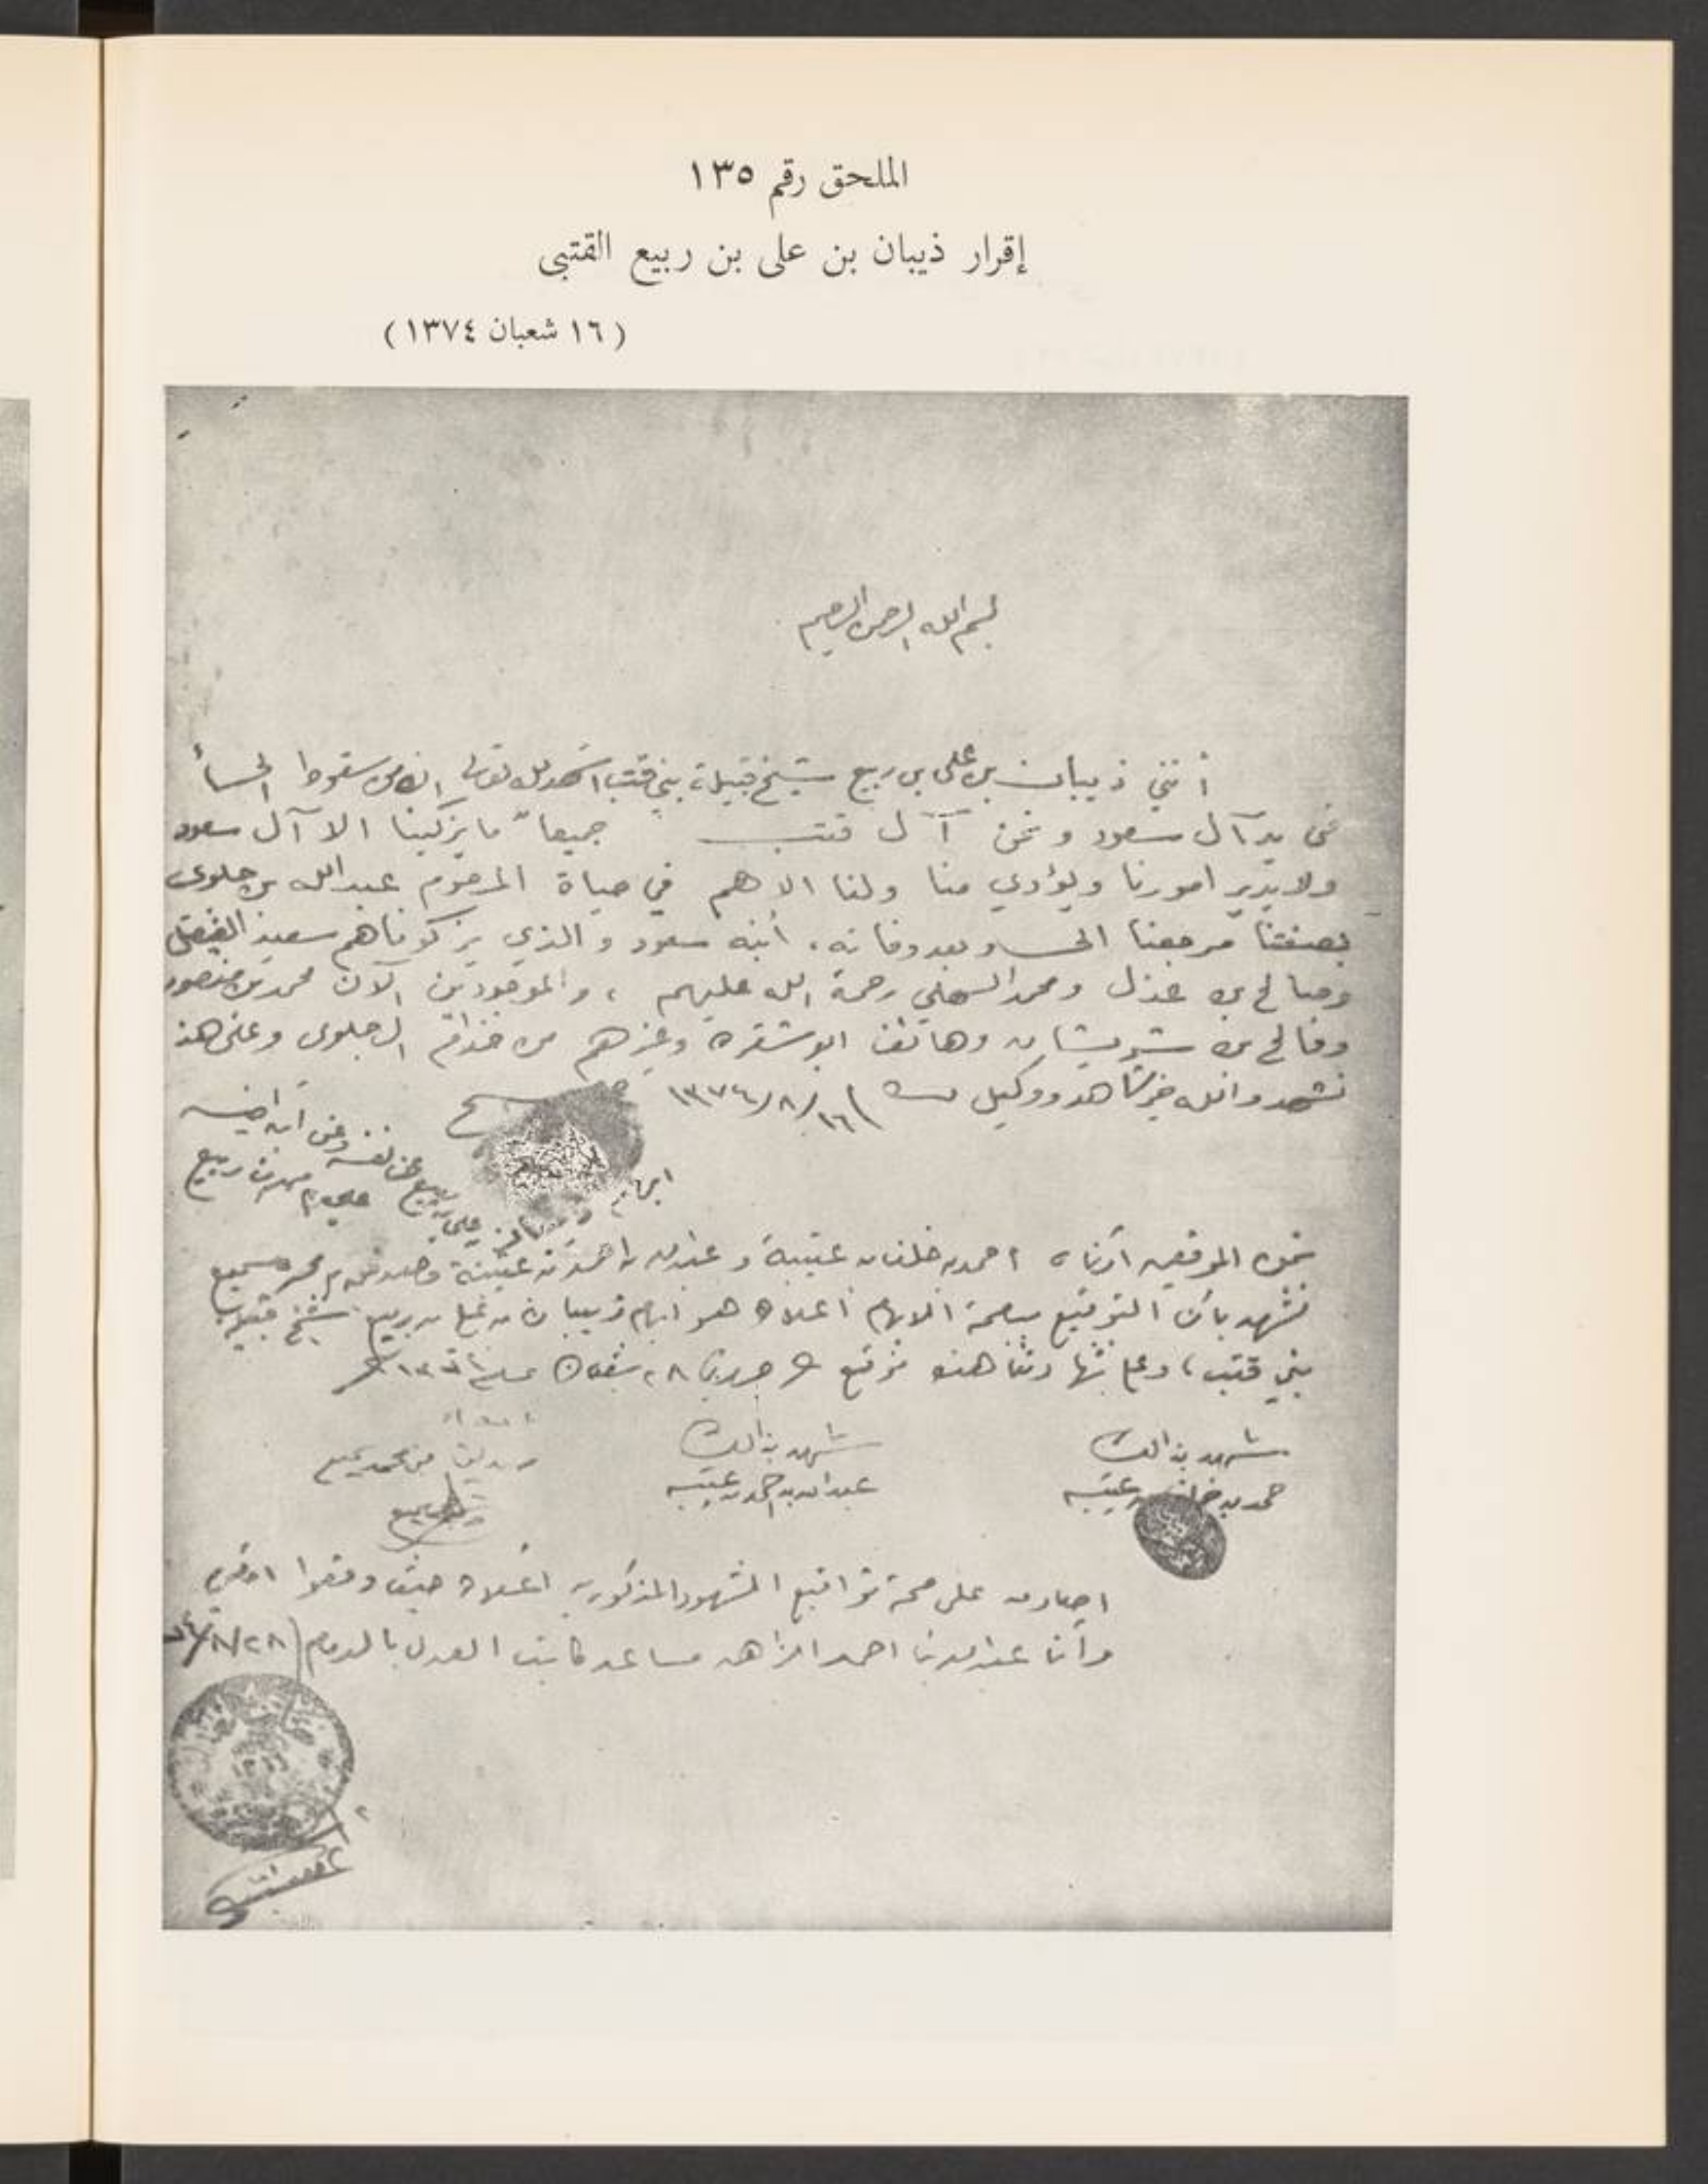 الملحق رقم ١٣٥
إقرار ذيبان بن على بن ربيع القتبى
( ١٦ شعبان ١٣٧٤ )
بسم الله الرحمن الرحيم
أنني ذيبان بن على بن ربيع شيخ قبيلة بني قتب اشهد لله تعالى ان من سقوط الحسأ
في يد آل سعود ونحن آل قتب جميعاً ما يزكينا الا آل سعود
ولا يدير امورنا ويؤدي منا ولنا الا هم في حياة المرحوم عبدالله بن جلوى
بصفتنا مرجعنا الحسا وبعد وفاته، أبنه سعود والذي يزكوناهم سعيد الفيصل
وصالح بن عذل ومحمد السهلي رحمة الله عليهم، والموجودين الآن محمد بن منصور
وفالح بن وهاتف ابو شقره وغيرهم من خدام ال جلوى وعلى هذ
نشهد والله خير شاهد ووكيل ١٣٧٤/٨/١٦
ابهام ذيبان بن علي بن ربيع عن نفسه وعن ابن اخيه
علي بن ربيع
نحن الموقعين ادناه احمد بن خلفان عتيبة وعبدالله بن احمد بن عتيبة وصديق بن محمد سميع
نشهد بأن التوقيع ببصمة الابهام أعلاه هو ابهام ذيبان بن علي بن ربيع شيخ قبيلة
بني قتب، وعلى شهادتنا هذه نوقع ٢٨ شعبان
شهد بذالك
حمد بن خلفان بن عتيبه
شهد بذالك
عبدالله بن احمد بن عتيبه
صديق بن محمد سميع
اصادق على صحة تواقيع الشهود المذكورين اعلاه حيث وقعوا امامي
وأنا عبدالله بن احمد مساعد كاتب العدل بالدمام ٢٨/٨/٧٤